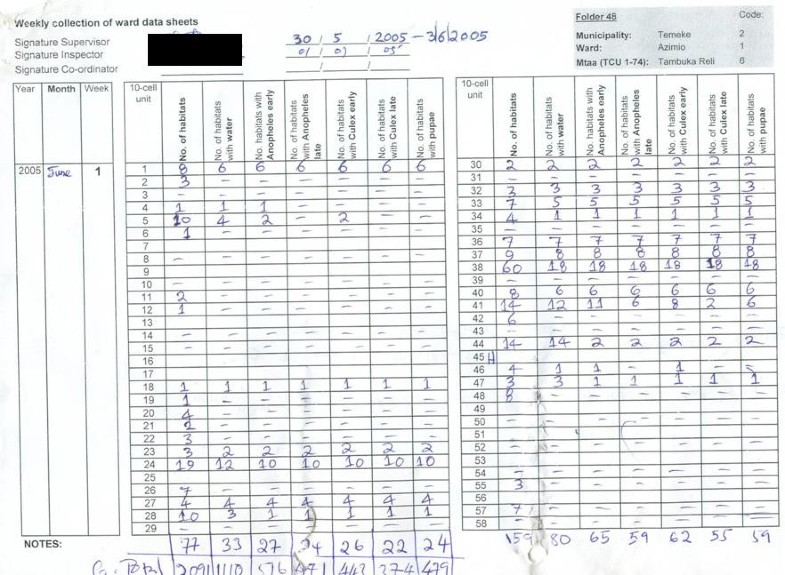 Weekly collection of ward data sheets
Signature Supervisor 30 / 5 / 2005 - 3/6/2005
Signature Inspector 01 / 01 / 05
Signature Co-ordinator / /
Folder 48 Code:
Municipality: Temeke 2
Ward: Azimio 1
Mtaa (TCU 1-74): Tambuka Reli 6
Year Month Week 10-cell unit No. of habitats No. of habitats with water No. habitats with Anopheles early No. of habitats with Anopheles late No. of habitats with Culex early No. of habitats with Culex late No. of habitats with pupae
2005 June 1
1 8 6 6 6 6 6 6
2 3 - - - - - -
3 - - - - - - -
4 1 1 1 - - - -
5 10 4 2 - 2 - -
6 1 - - - - - -
7
8 - - - - - - -
9
10 - - - - - - -
11 2 - - - - - -
12 1 - - - - - -
13
14 - - - - - - -
15 - - - - - - -
16
17
18 1 1 1 1 1 1 1
19 1 - - - - - -
20 4 - - - - - -
21 2 - - - - - -
22 3 - - - - - -
23 3 2 2 2 2 2 2
24 19 12 10 10 10 10 10
25
26 7 - - - - - -
27 4 4 4 4 4 4 4
28 10 3 1 1 1 1 1
29 - - - - - - -
NOTES: 77 33 27 24 26 22 24
10-cell unit No. of habitats No. of habitats with water No. habitats with Anopheles early No. of habitats with Anopheles late No. of habitats with Culex early No. of habitats with Culex late No. of habitats with pupae
30 2 2 2 2 2 2 2
31 - - - - - - -
32 3 3 3 3 3 3 3
33 7 5 5 5 5 5 5
34 4 1 1 1 1 1 1
35 - - - - - - -
36 7 7 7 7 7 7 7
37 9 8 8 8 8 8 8
38 60 18 18 18 18 18 18
39 - - - - - - -
40 8 6 6 6 6 6 6
41 14 12 11 6 8 2 6
42 6 - - - - - -
43 - - - - - - -
44 14 14 2 2 2 2 2
45 H
46 4 1 1 - 1 - -
47 3 3 1 1 1 1 1
48 8 - - - - - -
49
50 - - - - - - -
51
52 - - - - - - -
53
54 - - - - - - -
55 3 - - - - - -
56
57 7 - - - - - -
58 - - - - - - -
159 80 65 59 62 55 59
Total 2091 1110 576 471 443 374 479